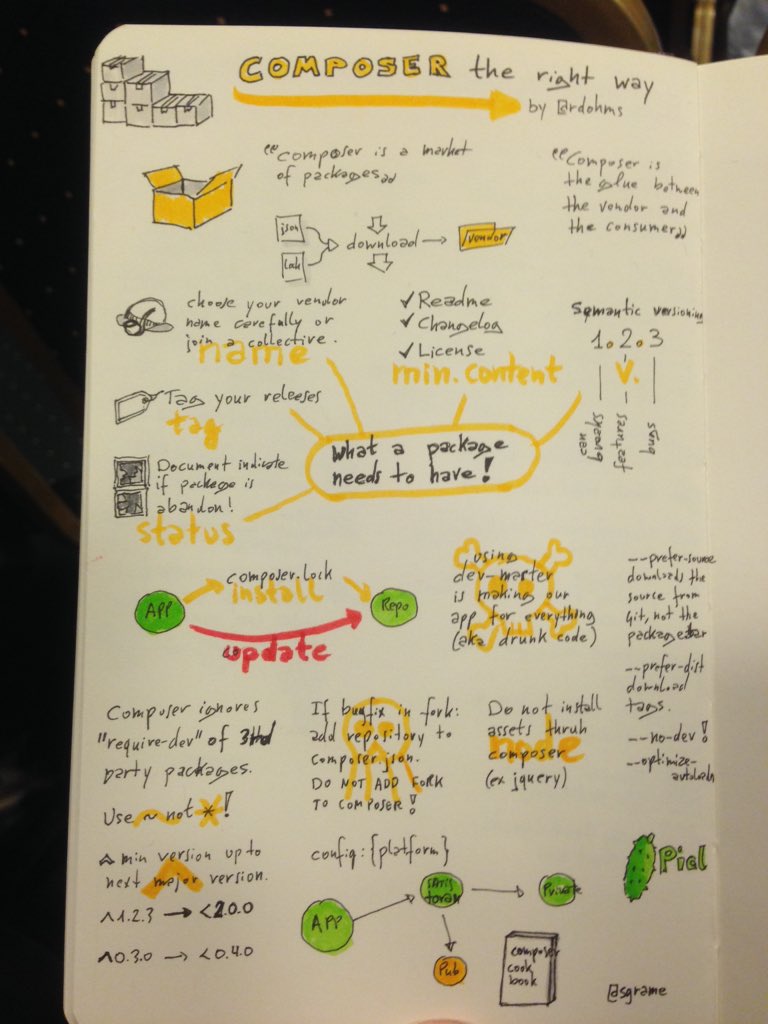 COMPOSER the right way
by @rdohms
"Composer is a market
of packages"
"Composer is
the glue between
the vendor and
the consumer"
json
lock
download
/vendor
choose your vendor
name carefully or
join a collective.
name
✓ Readme
✓ Changelog
✓ License
min. content
Semantic versioning
1.2.3
V.
can breaks
features
bugs
Tag your releses
tag
What a package
needs to have!
Document indicate
if package is
abandon!
status
APP
composer.lock
install
Repo
update
using
dev-master
is making our
app for everything
(aka drunk code)
--prefer-source
downloads the
source from
Git, not the
package tar
--prefer-dist
download
tags.
--no-dev!
--optimize-
autoloader
Composer ignores
"require-dev" of 3rd
party packages.
Use ~ not *!
If bugfix in fork:
add repository to
composer.json.
DO NOT ADD FORK
TO COMPOSER!
Do not install
assets thruh
composer
(ex jquery)
node
^ min version up to
next mejor version.
^1.2.3 → <2.0.0
^0.3.0 → <0.4.0
config:{platform}
APP
satis
toran
Private
Pub
composer
cook
book
Picl
@sgrame